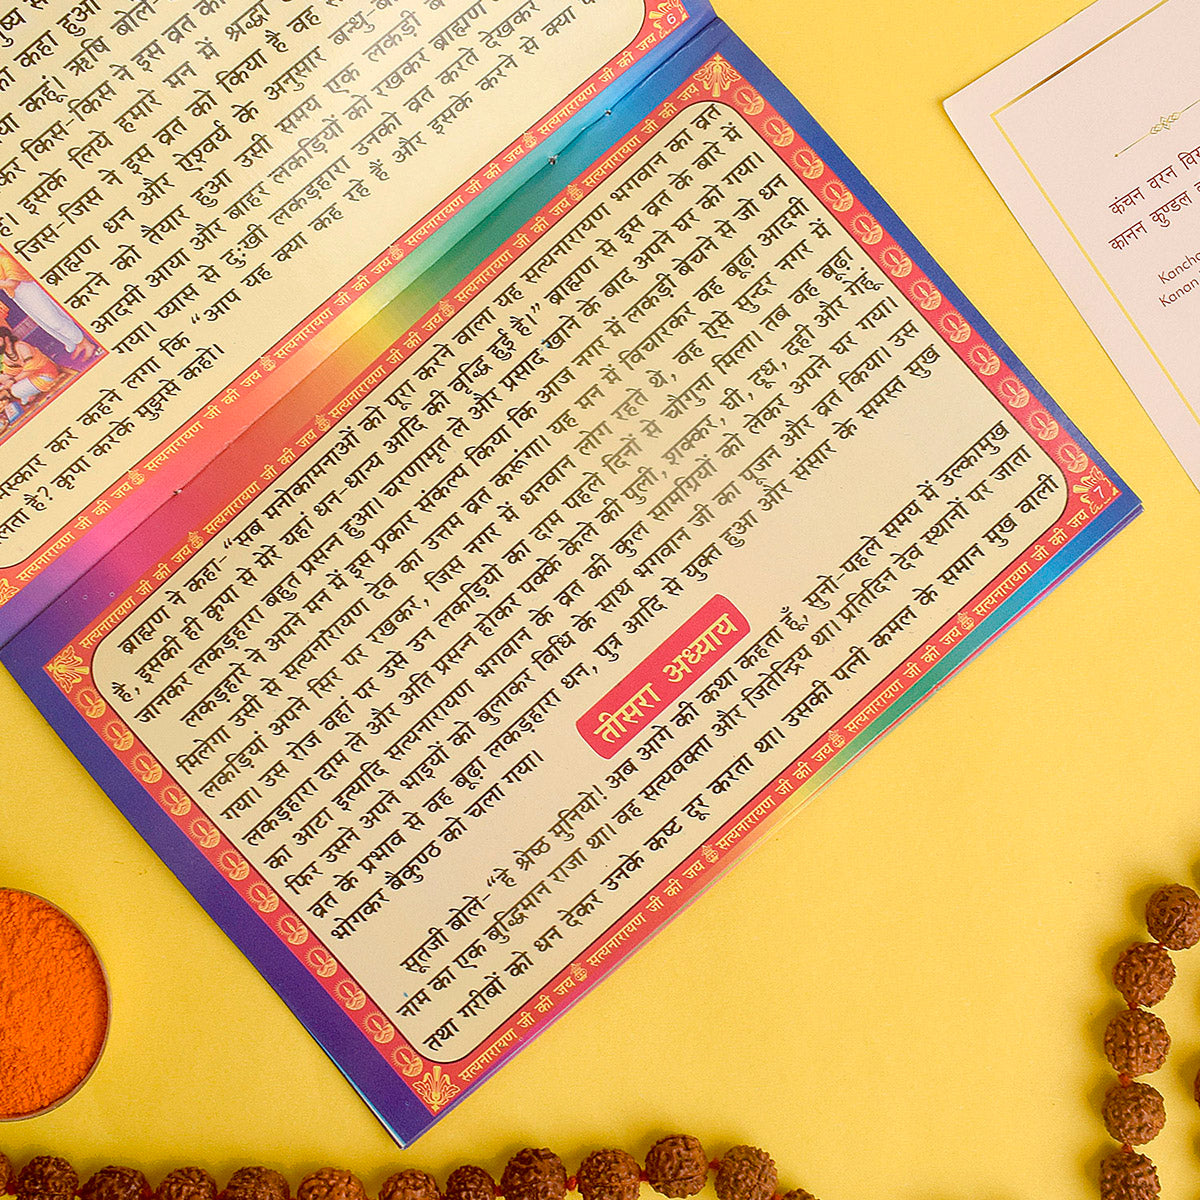 ष्य स
का कहा हुआ
या कहूं। ऋषि बोले-
कर किस-किस ने इस व्रत को
है। इसके लिये हमारे मन में श्रद्धा
जिस-जिस ने इस व्रत को किया है वह
ब्राह्मण धन और ऐश्वर्य के अनुसार बन्धु-
करने को तैयार हुआ उसी समय एक लकड़ी
आदमी आया और बाहर लकड़ियों को रखकर ब्राह्मण
गया। प्यास से दुःखी लकड़हारा उनको व्रत करते देखकर
नमस्कार कर कहने लगा कि “आप यह क्या कह रहे हैं और इसके करने से क्या
मिलता है? कृपा करके मुझसे कहो।
सत्यनारायण जी की जय
6
ब्राह्मण ने कहा-“सब मनोकामनाओं को पूरा करने वाला यह सत्यनारायण भगवान का व्रत
है, इसकी ही कृपा से मेरे यहां धन-धान्य आदि की वृद्धि हुई है।” ब्राह्मण से इस व्रत के बारे में
जानकर लकड़हारा बहुत प्रसन्न हुआ। चरणामृत ले और प्रसाद खाने के बाद अपने घर को गया।
लकड़हारे ने अपने मन में इस प्रकार संकल्प किया कि आज नगर में लकड़ी बेचने से जो धन
मिलेगा उसी से सत्यनारायण देव का उत्तम व्रत करूंगा। यह मन में विचारकर वह बूढ़ा आदमी
लकड़ियां अपने सिर पर रखकर, जिस नगर में धनवान लोग रहते थे, वह ऐसे सुन्दर नगर में
गया। उस रोज वहां पर उसे उन लकड़ियों का दाम पहले दिनों से चौगुना मिला। तब वह बूढ़ा
लकड़हारा दाम ले और अति प्रसन्न होकर पक्के केले की पुली, शक्कर, घी, दूध, दही और गेहूँ
का आटा इत्यादि सत्यनारायण भगवान के व्रत की कुल सामग्रियों को लेकर अपने घर गया।
फिर उसने अपने भाइयों को बुलाकर विधि के साथ भगवान जी का पूजन और व्रत किया। उस
व्रत के प्रभाव से वह बूढ़ा लकड़हारा धन, पुत्र आदि से युक्त हुआ और संसार के समस्त सुख
भोगकर बैकुण्ठ को चला गया।
तीसरा अध्याय
सूतजी बोले-“हे श्रेष्ठ मुनियो! अब आगे की कथा कहता हूँ, सुनो-पहले समय में उल्कामुख
नाम का एक बुद्धिमान राजा था। वह सत्यवक्ता और जितेन्द्रिय था। प्रतिदिन देव स्थानों पर जाता
तथा गरीबों को धन देकर उनके कष्ट दूर करता था। उसकी पत्नी कमल के समान मुख वाली
सत्यनारायण जी की जय
7
कंचन वरन
कानन कुण्डल
Kanan